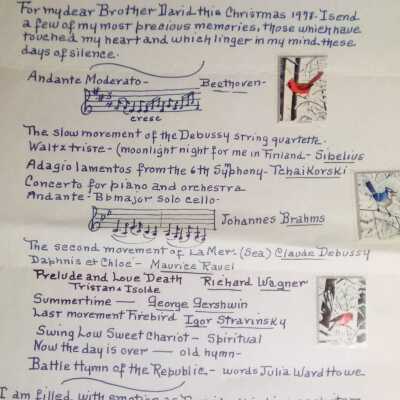 For my dear Brother David this Christmas 1998. I send
a few of my most precious memories, those which have
touched my heart and which linger in my mind these
days of silence.
Andante Moderato - Beethoven -
cresc
The slow movement of the Debussy string quartette.
Waltz triste - (moonlight night for me in Finland - Sibelius
Adagio lamentos from the 6th Symphony - Tchaikorski
Concerto for piano and orchestra
Andante - Bb major solo cello -
Johannes Brahms
The second movement of La Mer. (Sea) Claude Debussy
Daphnis et Chloe - Maurice Ravel
Prelude and Love Death Richard Wagner
Tristan & Isolde
Summertime — George Gershwin
Last movement Firebird Igor Stravinsky
Swing Low Sweet Chariot - Spiritual
Now the day is over — old hymn -
Battle Hymn of the Republic - words Julia Ward Howe
I am filled with emotion as